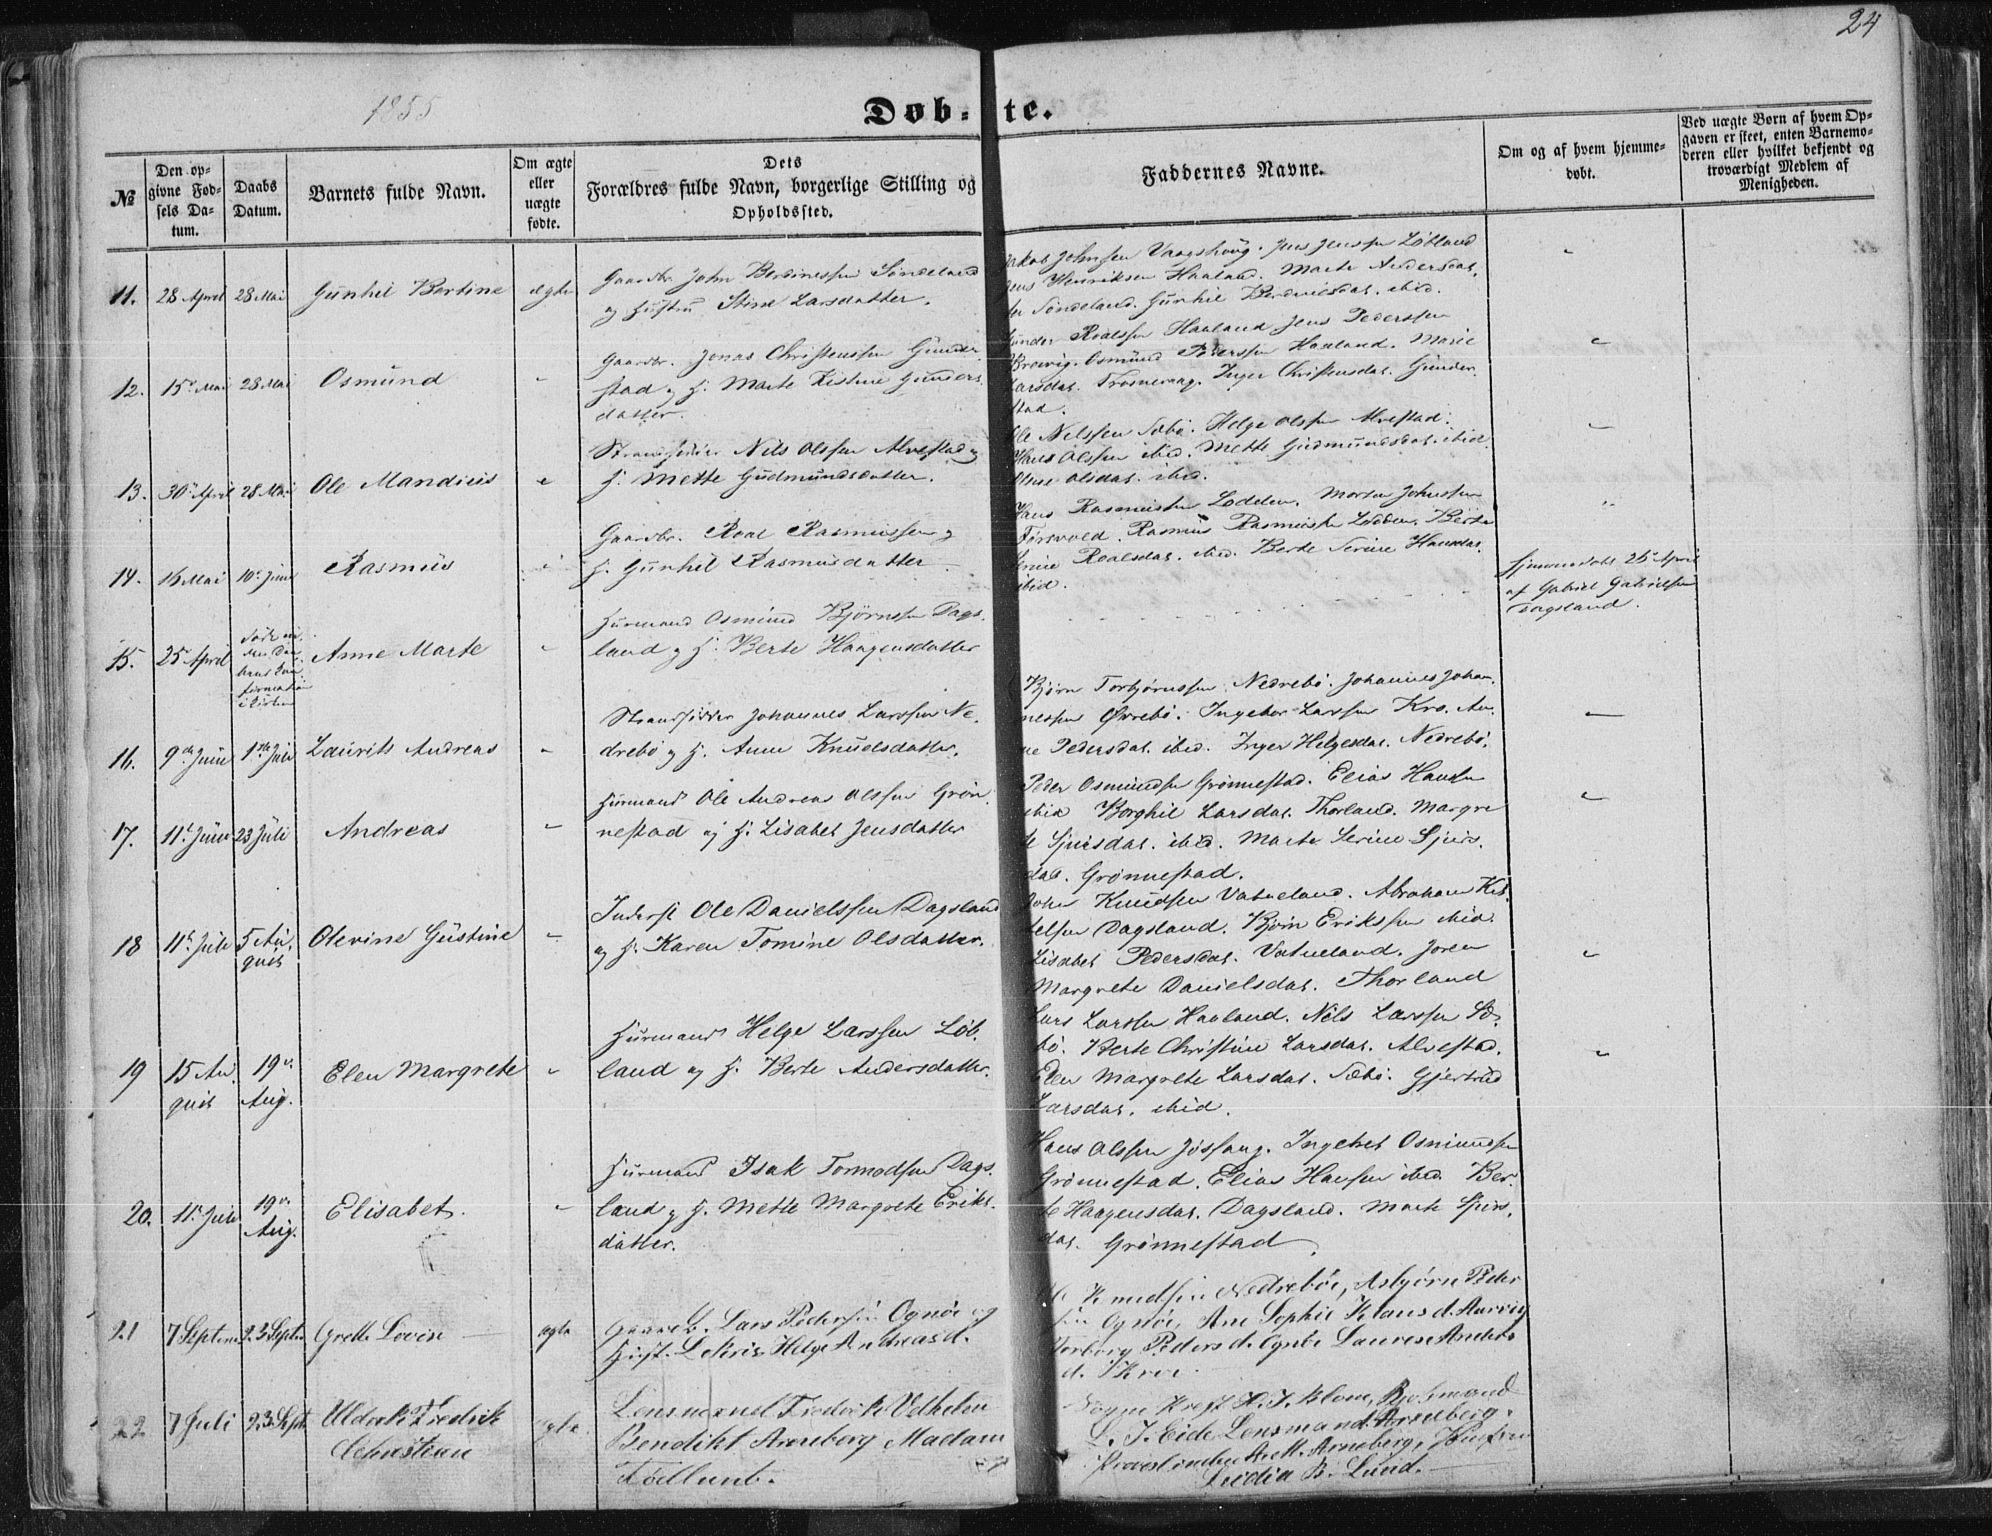 24
1855
Døb-te.
№
Den op-
givne Fød-
sels Da-
tum.
Daabs
Datum.
Barnets fulde Navn.
Om ægte
eller
uægte
fødte.
Dets
Forældres fulde Navn, borgerlige Stilling og
Opholdssted.
Faddernes Navne.
Om og af hvem hjemme-
døbt.
Ved uægte Børn af hvem Op-
gaven er skeet, enten Barnemo-
deren eller hvilket bekjendt og
troværdigt Medlem af
Menigheden.
11. 28 April 28 Mai Gunhil Bertine ægte
Gaardbr. John Berdinessen Søndeland
og Hustru Stine Larsdatter.
Jakob Johnsen Vaagshaug. Jens Jensen Løbland
Jens Henriksen Haaland. Marte Andersdat.
Søndeland. Gunhil Berdinesdat. ibid.
12. 15 Mai 28 Mai Osmund "
Gaardbr. Jonas Christensen Gunder
stad og H. Marte Kistine Gunders
datter.
Gunder Roalsen Haaland Jens Pedersen
Brevig. Osmund Pedersen Haaland. Marie
Larsdat. Trosnevaag. Inger Christensdat. Gunder
stad.
13. 30 April 28 Mai Ole Mandius "
Strandsidder Nils Olssen Alvestad og
H. Mette Gudmundsdatter.
Ole Nelssen Sæbø. Helge Olssen Alvestad.
Hans Olssen ibid. Mette Gudmundsdat. ibid.
Olsdat. ibid.
14. 16 Mai 10 Juni Rasmus "
Gaardbr. Roal Rasmussen og
H. Gunhil Rasmusdatter
Hans Rasmussen Lodden. Morten Johnsen
Førsvold. Rasmus Rasmussen Lodden. Berte
Roalsdat. ibid. Berte Serine Hansdat.
ibid.
15. 25 April
Anne Marte "
Huusmand Osmund Bjørnsen Dags-
land og H. Berte Haagensdatter
Hjemmedøbt 25 April
af Gabriel Gabrielsen
Dagsland.
16. 9de Juni 1ste Juli Laurits Andreas "
Strandsidder Johannes Larssen Ne-
drebø og H. Anne Knudsdatter.
Bjørn Torbjørnssen Nedrebø. Johannes Johan-
nessen Øvrebø. Ingebor Larssen Kro. An-
ne Pedersdat. ibid. Inger Helgesdat. Nedrebø.
17. 11 Juni 23 Juli Andreas "
Huusmand Ole Andreas Olssen Grøn-
nestad og H. Lisabet Jensdatter
Peder Osmundsen Grønnestad. Elias Hansen
ibid Borghil Larsdat. Thorland. Margre
te Sjursdat. ibid. Marte Serine Sjurs-
dat. Grønnestad.
18 11 Juli 5 Au-
gust
Olevine Gustine "
Inderst Ole Danielssen Dagsland
og H. Karen Tomine Olsdatter.
John Knudsen Vatneland. Abraham Ket-
telsen Dagsland. Bjørn Erikssen ibid.
Lisabet Pedersdat. Vatneland. Joren
Margrete Danielsdat. Thorland
19 15 Au-
gust
19
Aug.
Elen Margrete "
Huusmand Helge Larssen Løb-
land og H. Berte Andersdatter.
Lars Larssen Haaland. Nels Larssen Sæ-
bø. Berte Christine Larsdat. Alvestad.
Elen Margrete Larsdat. Sæbø. Gjertrud
Larsdat. ibid.
20. 11 Juli 19
Aug.
Elisabet. "
Huusmand Isak Tormodsen Dags-
land og H. Mette Margrete Eriks-
datter.
Hans Olssen Jøsfang. Ingebret Osmundsen
Grønnestad. Elias Hansen ibid. Ber-
te Haagensdat. Dagsland. Marte Sjurs-
dat. Grønnestad.
21 7 Septem 23 Septr Grethe Lovise ægte
Gaardbr. Lars Pedersen Ognøe og
Hust. Helge Andreasd.
Knudsen Nedrebøe, Asbjørn Peder
sen Ognøe, Ane Sophie Klausd. Aarvig
Torborg Pedersd. Ognøe Laurese Anders
d. Kroe.
22 7 Juli 23 Sept Uldrik Fredrik
Christian
ægte
Lensmand Fredrik Velhelm
Benedikt Arneberg Madam
Sogne Præst H. J. Blom, Bjelmand
L. J. Eide Lensmand Arneberg.
A. M. Arneberg, Jomfru
Lydia B. Lund.